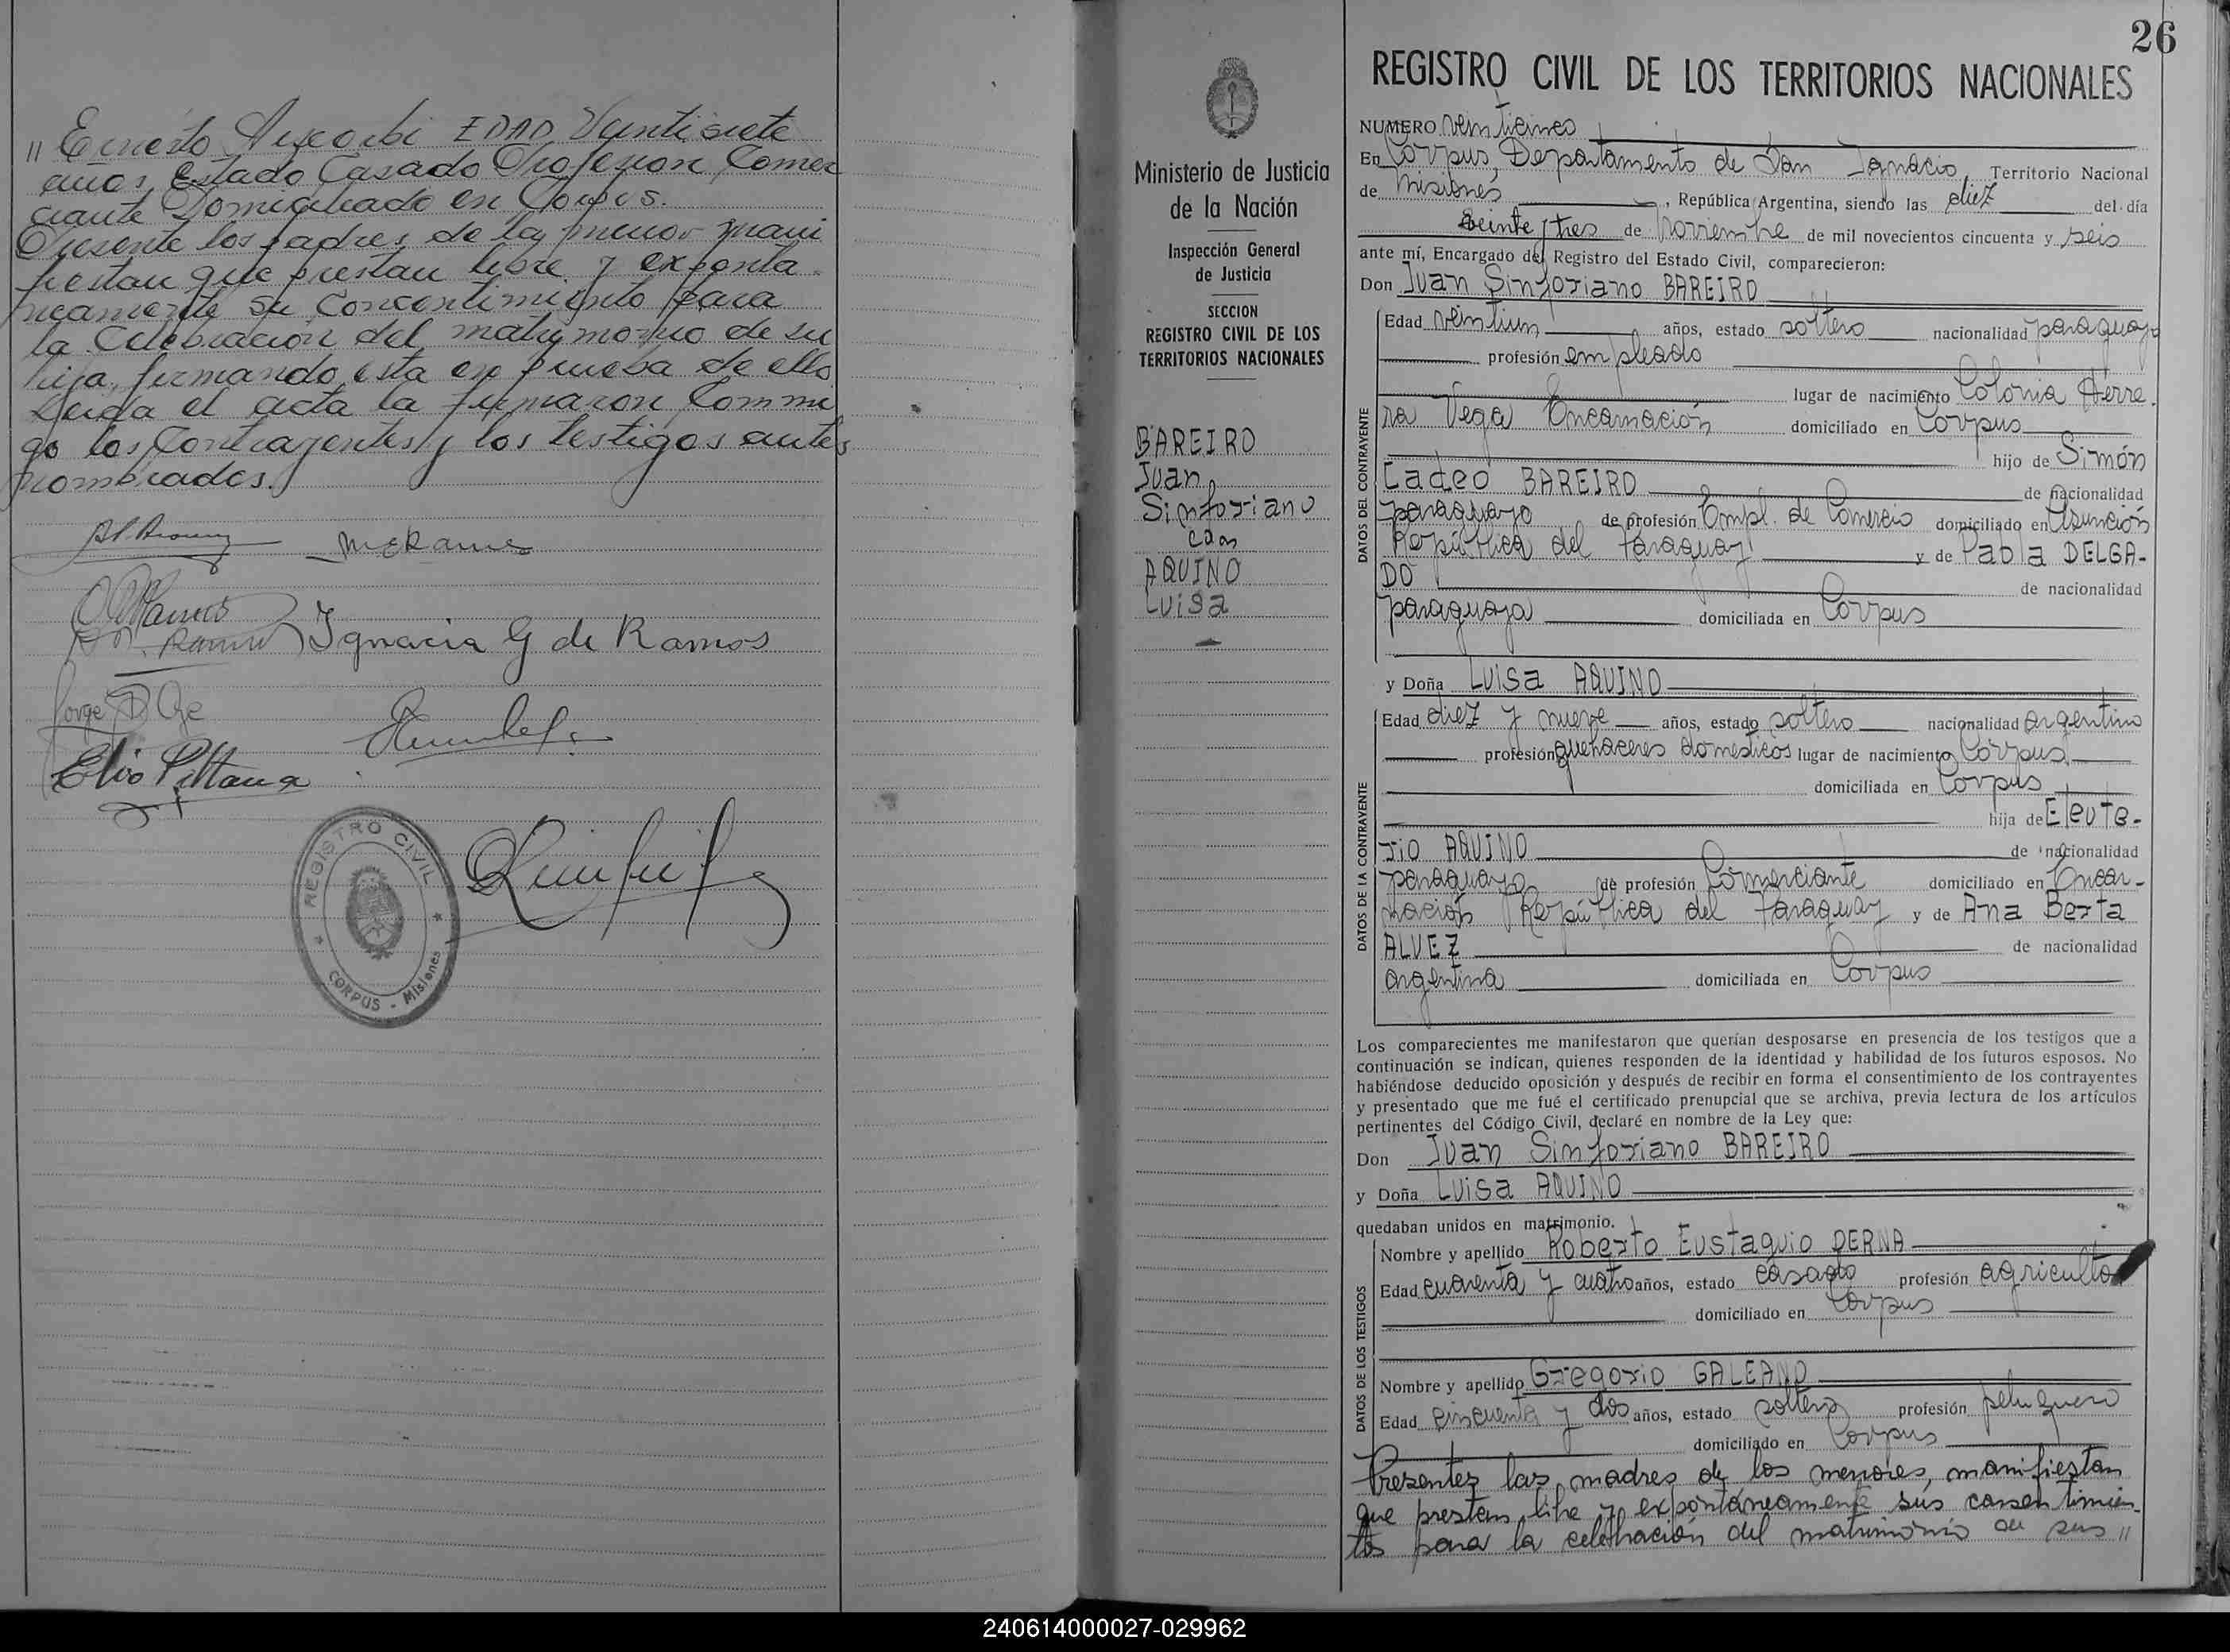 " Ernesto EDAD Veintisiete
años, Estado Casado Profesion Comer
ciante Domiciliado en Corpus.
Presente los padres de la menor mani
fiestan que prestan libre y exponta
neamente su Concentimiento para
la Celebracion del matrimonio de su
hija, firmando esta en prueba de ello
Leida el acta la firmaron Conmi
go los Contrayentes y los testigos antes
nombrados.
Ramos
Ignacia G de Ramos
Jorge D
Elio Pittana
REGISTRO CIVIL
CORPUS - Misiones
Ministerio de Justicia
de la Nación
Inspección General
de Justicia
SECCION
REGISTRO CIVIL DE LOS
TERRITORIOS NACIONALES
BAREIRO
Juan
Sinforiano
con
AQUINO
Luisa
26
REGISTRO CIVIL DE LOS TERRITORIOS NACIONALES
NUMERO veinticinco
En Corpus, Departamento de San Ignacio, Territorio Nacional
de Misiones, República Argentina, siendo las diez del día
veinte y tres de Noviembre de mil novecientos cincuenta y seis
ante mí, Encargado del Registro del Estado Civil, comparecieron:
Don Juan Sinforiano BAREIRO
DATOS DEL CONTRAYENTE
Edad veintiun años, estado soltero nacionalidad paraguayo
profesión empleado
lugar de nacimiento Colonia Herre
ra Vega Encarnación domiciliado en Corpus
hijo de Simón
Tadeo BAREIRO de nacionalidad
paraguayo de profesión Empl. de Comercio domiciliado en Asunción
República del Paraguay y de Pabla DELGA-
DO de nacionalidad
paraguaya domiciliada en Corpus
y Doña Luisa AQUINO
DATOS DE LA CONTRAYENTE
Edad diez y nueve años, estado soltero nacionalidad argentino
profesión quehaceres domesticos lugar de nacimiento Corpus
domiciliada en Corpus
hija de Eleute-
rio AQUINO de nacionalidad
paraguayo de profesión Comerciante domiciliado en Encar-
nación República del Paraguay y de Ana Berta
ALVEZ de nacionalidad
argentina domiciliada en Corpus
Los comparecientes me manifestaron que querían desposarse en presencia de los testigos que a
continuación se indican, quienes responden de la identidad y habilidad de los futuros esposos. No
habiéndose deducido oposición y después de recibir en forma el consentimiento de los contrayentes
y presentado que me fué el certificado prenupcial que se archiva, previa lectura de los artículos
pertinentes del Código Civil, declaré en nombre de la Ley que:
Don Juan Sinforiano BAREIRO
y Doña Luisa AQUINO
quedaban unidos en matrimonio.
DATOS DE LOS TESTIGOS
Nombre y apellido Roberto Eustaquio DERNA
Edad cuarenta y cuatro años, estado casado profesión agricultor
domiciliado en Corpus
Nombre y apellido Gregorio GALEANO
Edad cincuenta y dos años, estado soltero profesión peluquero
domiciliado en Corpus
Presentes las madres de los menores, manifiestan
que prestan libre y expontáneamente sus consentimien-
tos para la celebración del matrimonio de sus "
240614000027-029962